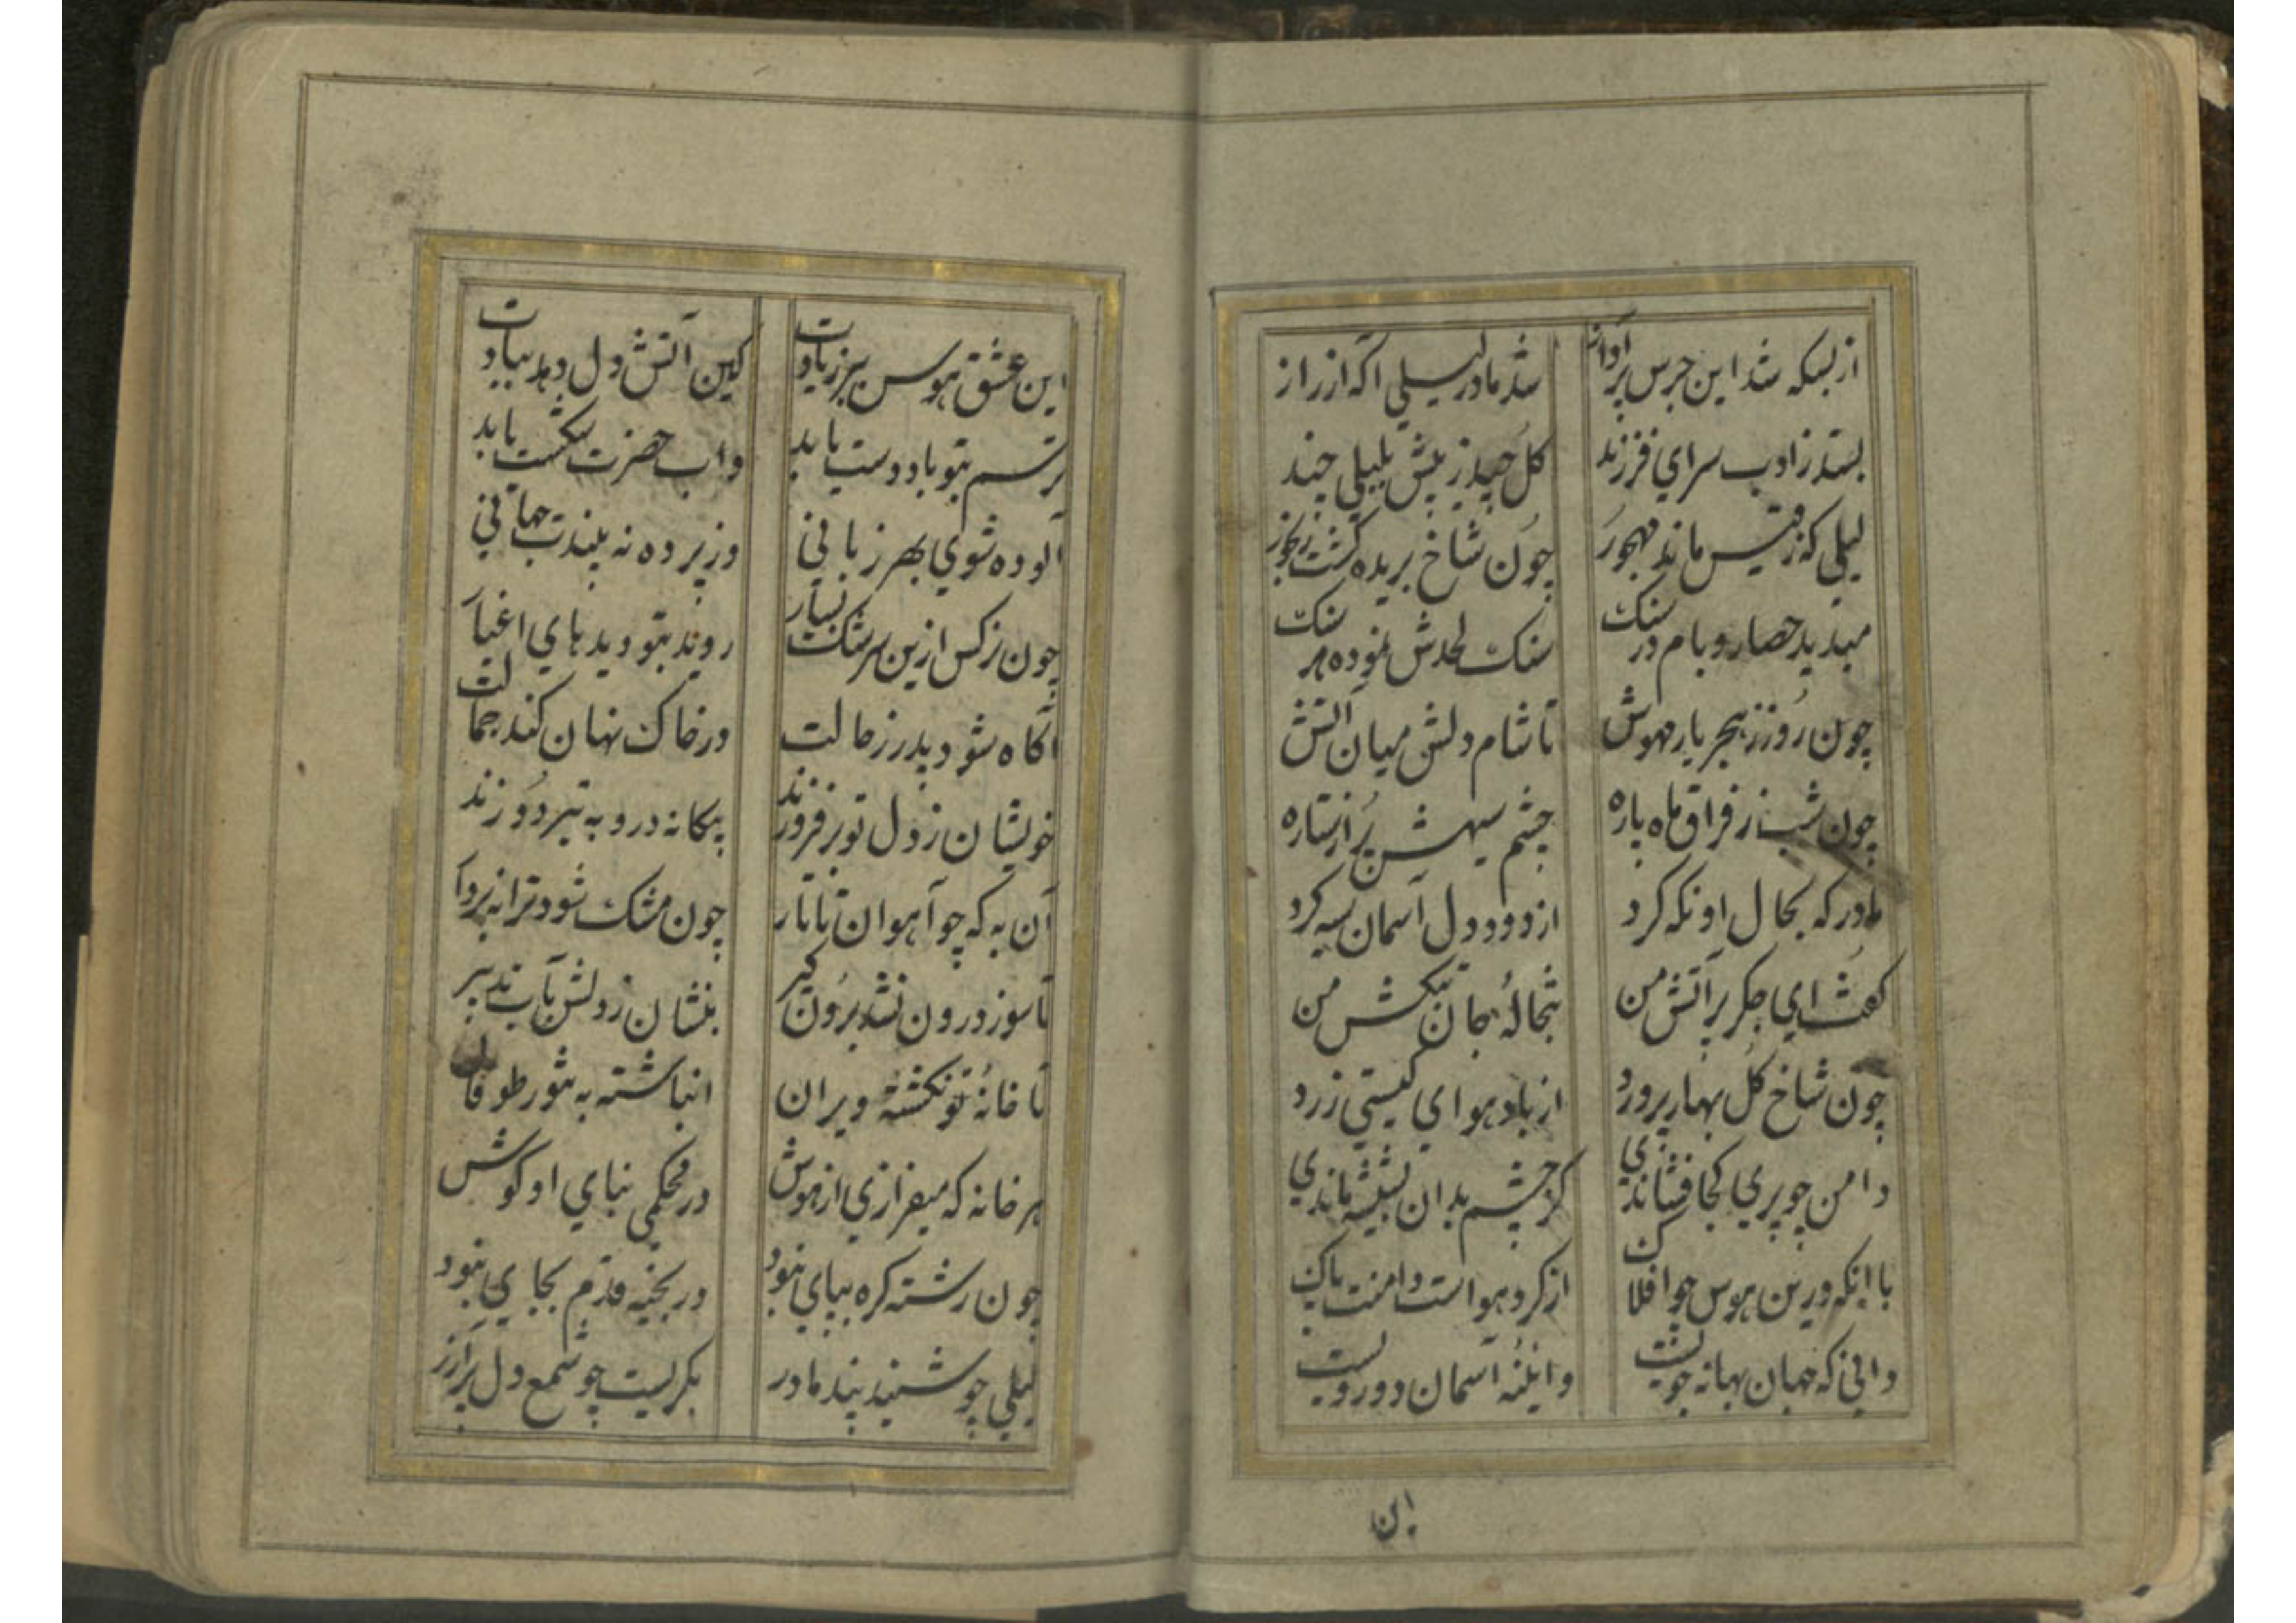 از بسکه شد این جرس پرآواز
شد مادر لیلی آکه از راز
بستد ز ادب سرای فرزند
کل چید ز پیش بلبلی چند
لیلی که ز قیس ماند مهجور
چون شاخ بریده کشت رنجور
میدید حصار و بام در سنک
سنک لحدش نموده هر سنک
چون روز ز هجر یار مهوش
تا شام دلش میان آتش
چون شب ز فراق ماه پاره
چشم سیهش پر از ستاره
مادر که بحال او نکه کرد
از دود دل آسمان سیه کرد
کفت ای جکر پر آتش من
تبخالهٔ جان من
چون شاخ کل بهار پرورد
از باد هوای کیستی زرد
دامن چو پری کجا فشاندی
کز چشم بدان نشیشه ماندی
با اینکه درین هوس چو افلاک
از کرد هواست دامنت پاک
دانی که جهان بهانه جویست
و آینهٔ آسمان دورویست
این
این عشق هوس ببر ز یادت
کین آتش دل دهد ببادت
ترسم بتو باد دست یابد
و اسب حضرت شکست یابد
آلوده شوی بهر زبانی
وز پرده نه بلندت جهانی
چون نرکس ازین سرشک بسیار
روید بتو دیدهای اغیار
آکاه شود پدر ز حالت
در خاک نهان کند جمالت
خویشان ز دل تو بر فروزند
بیکانه درو به تیر دوزند
آن به که چو آهوان تاتار
چون مشک شود ترا نبردار
تا سوز درون نشد برون کیر
بنشان ز دلش بآب تدبیر
تا خانهٔ تو نکشته ویران
انباشته به شور طوفان
هر خانه که میفرازی از هوش
در محکمی بنای او کوش
چون رشته کره بپای نبود
در بخیه قدم بجای نبود
لیلی چو شنید پند مادر
بکریست چو شمع دل پر آزر